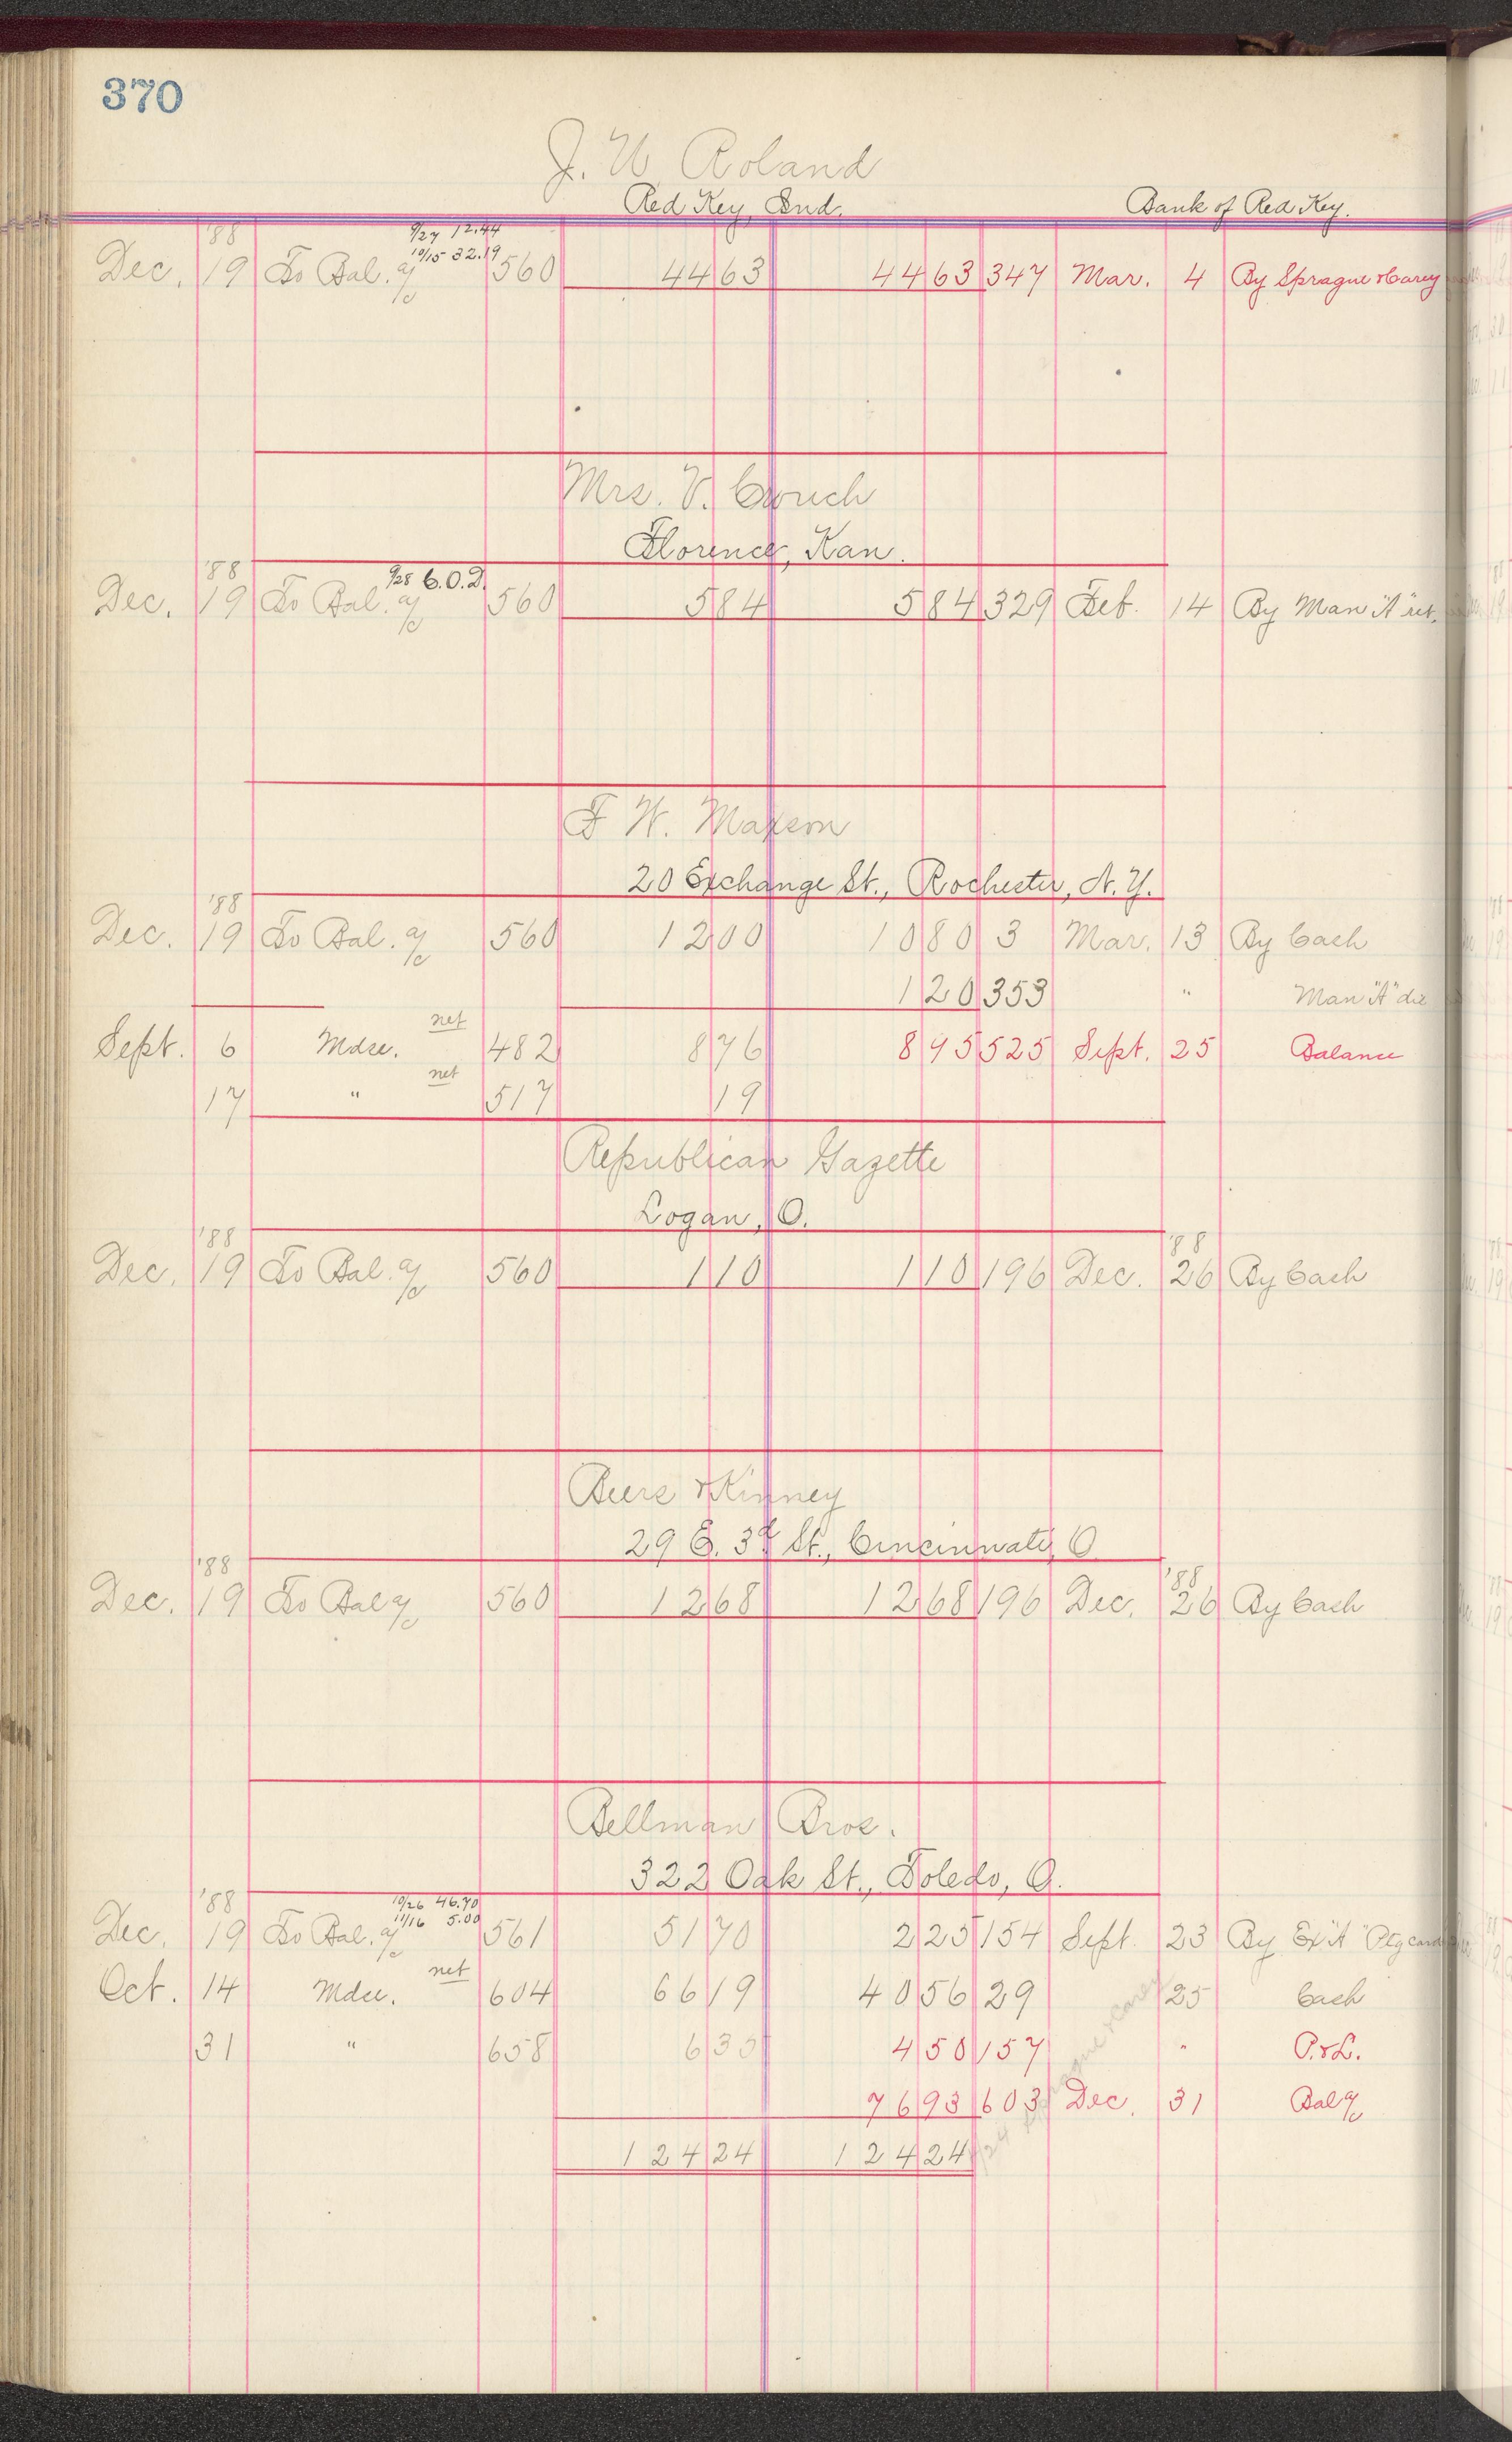 370
J. W. Roland
Red Key, Ind. Bank of Red Key.
'88 9/27 12.44
10/15 32.19
Dec. 19 To Bal. a/c 560 44 63 44 63 347 Mar. 4 By Sprague & Carey
Mrs. V. Crouch
Florence, Kan.
'88 9/28 C.O.D.
Dec. 19 To Bal. a/c 560 5 84 5 84 329 Feb. 14 By Man "A" ret.
F W. Maxson
20 Exchange St., Rochester, N.Y.
'88
Dec. 19 To Bal. a/c 560 12 00 10 80 3 Mar. 13 By Cash
1 20 353 " Man "A" dis
Sept. 6 Mdse. net 482 8 76 8 95 525 Sept. 25 Balance
17 " net 517 19
Republican Gazette
Logan, O.
'88 '88
Dec. 19 To Bal. a/c 560 1 10 1 10 196 Dec. 26 By Cash
Beers & Kinney
29 E. 3d St., Cincinnati, O
'88 '88
Dec. 19 To Bal a/c 560 12 68 12 68 196 Dec. 26 By Cash
Bellman Bros.
322 Oak St., Toledo, O.
'88 10/26 46.70
11/16 5.00
Dec. 19 To Bal. a/c 561 51 70 2 25 154 Sept. 23 By Ex "A"
Oct. 14 Mdse. net 604 66 19 40 56 29 25 Cash
31 " 658 6 35 4 50 157 " P. & L.
76 93 603 Dec. 31 Bal a/c
124 24 124 24